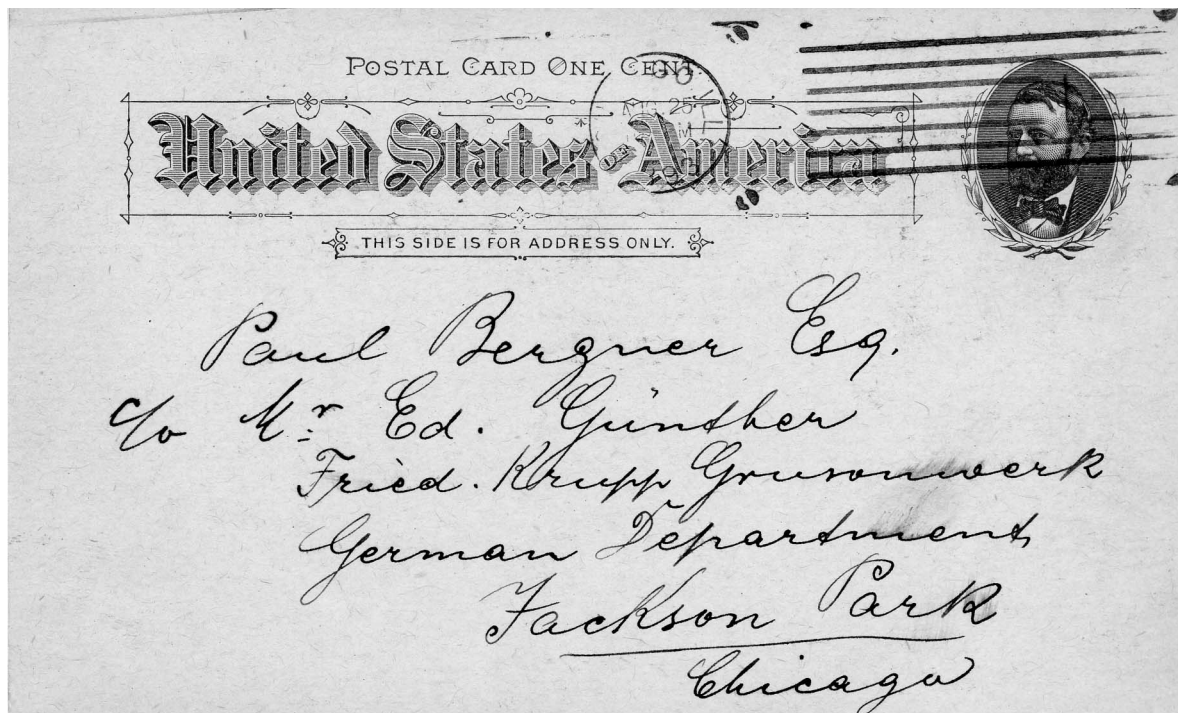 POSTAL CARD ONE CENT.
United States America
AUG 25
THIS SIDE IS FOR ADDRESS ONLY.
Paul Bergner Esq.
c/o Mr. Ed. Günther
Fried. Krupp Grusonwerk
German Department,
Jackson Park
Chicago